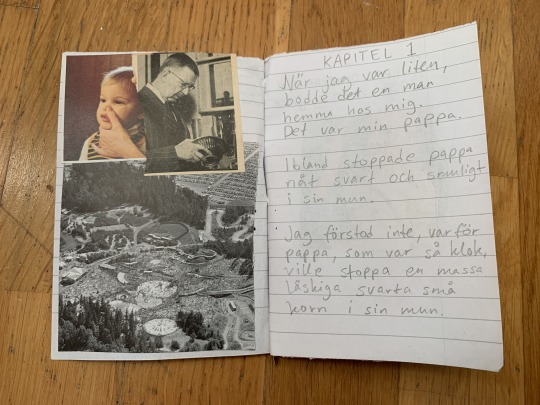 KAPITEL 1
När jag var liten,
bodde det en man
hemma hos mig.
Det var min pappa.
Ibland stoppade pappa
nåt svart och smuligt
i sin mun.
Jag förstod inte, varför
pappa, som var så klok,
ville stoppa en massa
läskiga svarta små
korn i sin mun.